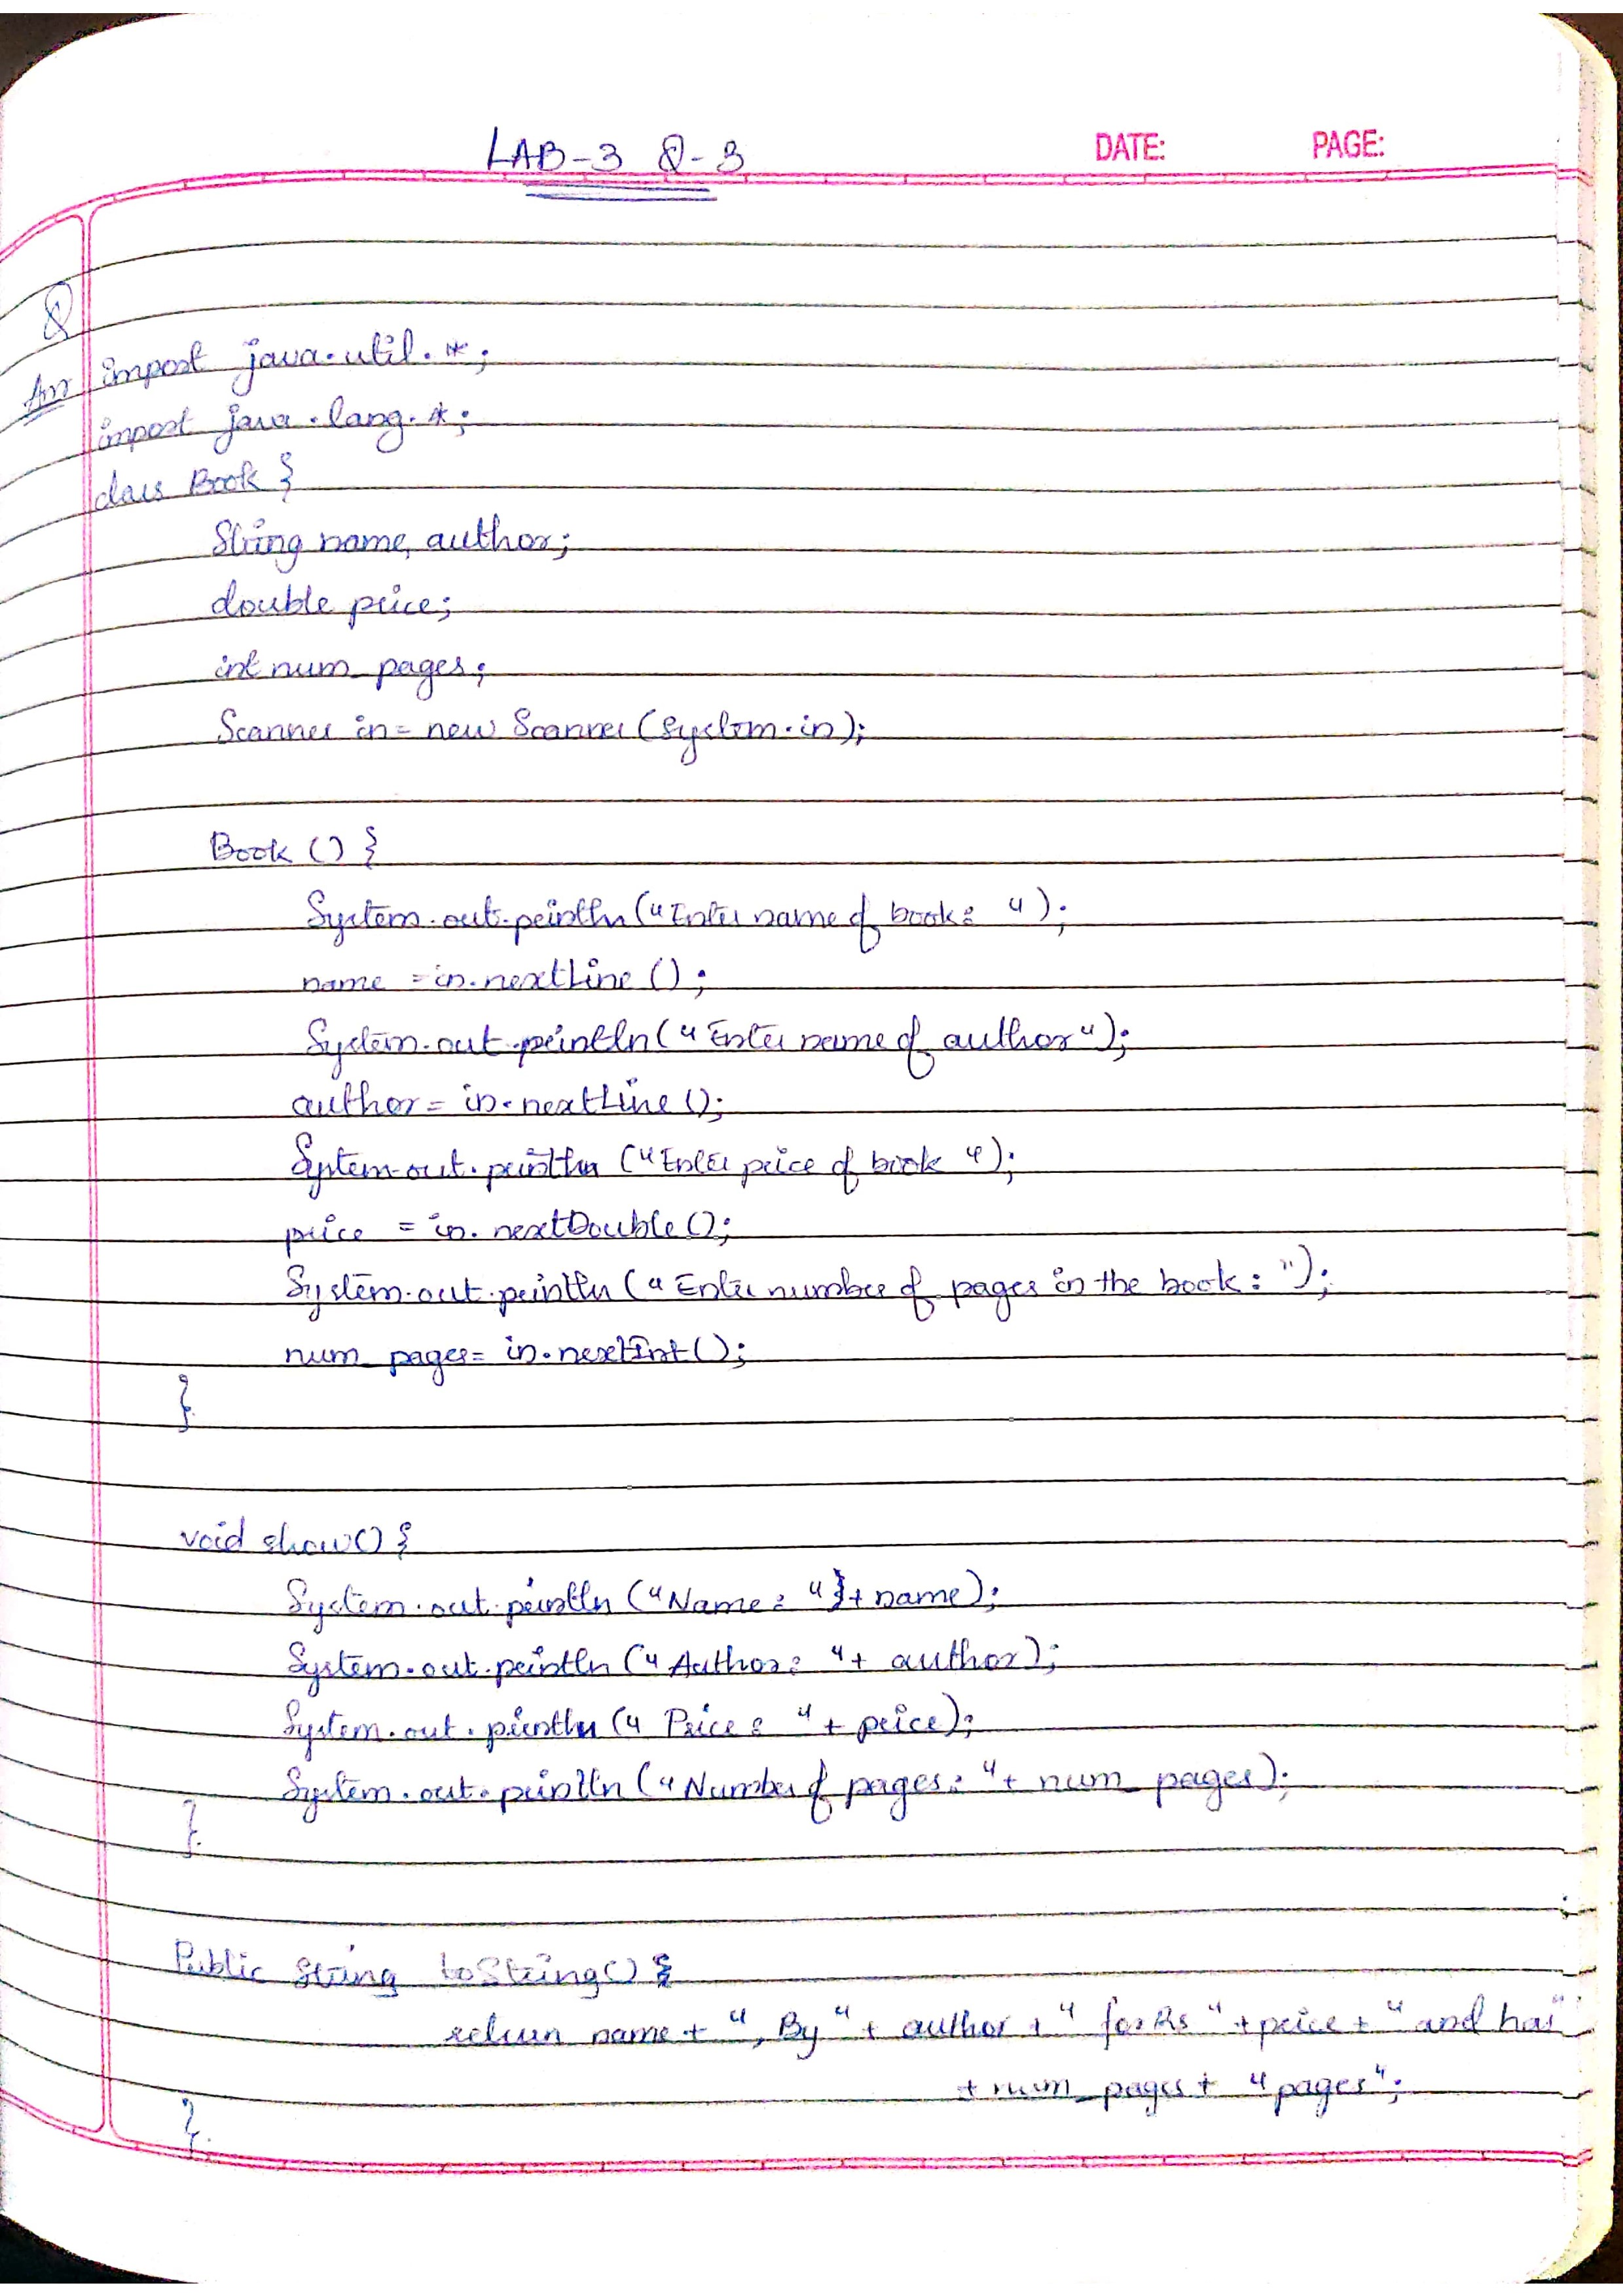 LAB-3 Q-3
DATE: PAGE:
Q
Ans import java.util.*;
import java.lang.*;
class Book {
String name, author;
double price;
int num_pages;
Scanner in = new Scanner (System.in);
Book () {
System.out.println ("Enter name of book: ");
name = in.nextLine ();
System.out.println ("Enter name of author");
author = in.nextLine ();
System.out.println ("Enter price of book ");
price = in.nextDouble ();
System.out.println ("Enter number of pages in the book: ");
num_pages = in.nextInt ();
}
void show() {
System.out.println ("Name: " + name);
System.out.println ("Author: " + author);
System.out.println (" Price: " + price);
System.out.println ("Number of pages: " + num_pages);
}
Public String toString() {
return name + ", By " + author + " for Rs " + price + " and has "
+ num_pages + " pages";
}